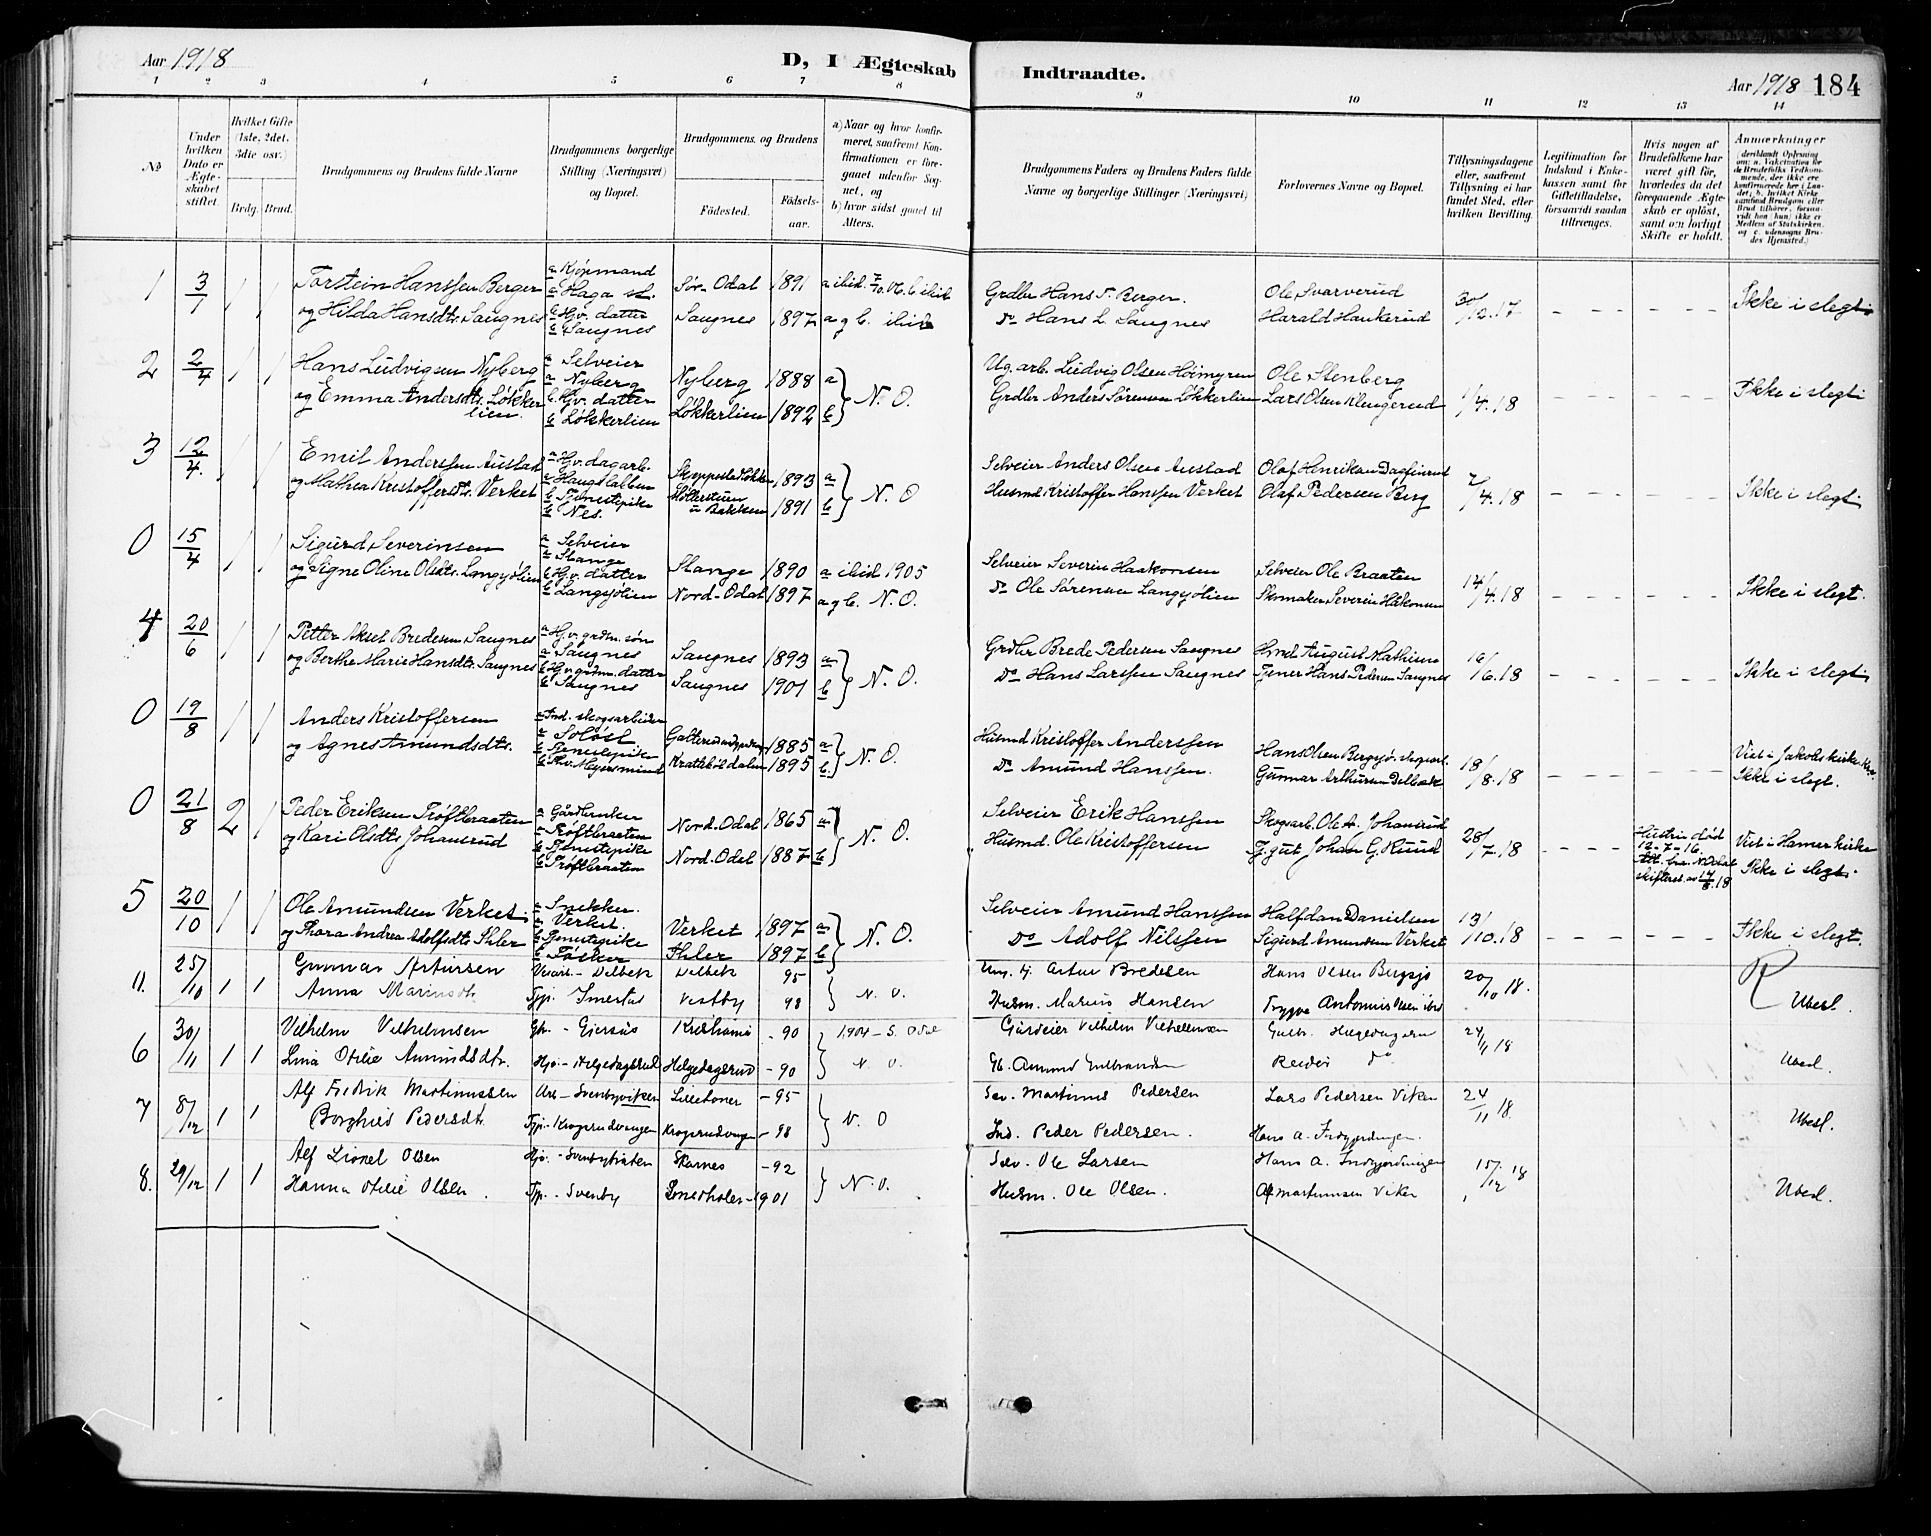 Aar 1918
D, I Ægteskab Indtraadte.
Aar 1918 184
1 2 3 4 5 6 7 8 9 10 11 12 13 14
No
Under hvilken Dato er Ægteskabet stiftet.
Hvilket Gifte (1ste, 2det, 3die osv.)
Brdg. Brud.
Brudgommens og Brudens fulde Navne
Brudgommens borgerlige Stilling (Næringsvei) og Bopæl.
Brudgommens og Brudens
Fødested. Fødselsaar.
a) Naar og hvor konfirmeret, saafremt Konfirmationen er foregaaet udenfor Sognet, og
b) hvor sidst gaaet til Alters.
Brudgommens Faders og Brudens Faders fulde Navne og borgerlige Stillinger (Næringsvei)
Forlovernes Navne og Bopæl.
Tillysningsdagene eller, saafremt Tillysning ei har fundet Sted, efter hvilken Bevilling.
Legitimation for Indskud i Enkekassen samt for Giftetilladelse, forsaavidt saadan tiltrænges.
Hvis nogen af Brudefolkene har været gift før, hvorledes da det foregaaende Ægteskab er opløst, samt om lovligt Skifte er holdt.
Anmærkninger
1 3/1 1 1 Torstein Hanssen Berger a Kjøpmand Sør-Odal 1891 Grdbr Hans T. Berger. Ole Svarverud 30/12.17 Ikke i slegt
a Haga st.
og Hilda Hansdtr. Saugnes b Hjv. datter Saugnes 1897 a og b. ibid Do Hans L. Saugnes Harald Haukerud
b Saugnes
2 2/4 1 1 Hans Ludvigsen Nyberg a Selveier Nyberg 1888 a N. O. Ug. arb. Ludvig Olsen Ole Stenberg 1/4.18 Ikke i slegt
a Nyberg
og Emma Andersdtr. Løkkerlien. b Hjv. datter Løkkerlien 1892 b Grdbr Anders Sørensen Løkkerlien Lars Olsen Klengerud
b Løkkerlien
3 12/4. 1 1 Emil Anderssen Austad a Hjv. dagarb. 1893 a N. O Selveier Anders Olsen Austad Olaf Henriksen 7/4.18 Ikke i slegt
og Mathea Kristoffersdtr. Verket b Tjenestepike 1891 b Husmd Kristoffer Hanssen Verket Olaf Pedersen Berg
b Nes.
0 15/4 1 1 Sigurd Severinsen a Selveier Stange 1890 a ibid 1905 Selveier Severin Haakonsen Selveier Ole Braaten 14/4.18 Ikke i slegt.
a Stange
og Signe Oline Olsdtr. Langsjølien b Hjv. datter Nord-Odal 1897 a og b. N. O. Do Ole Sørensen Langsjølien Skomaker Severin Håkonsen
b Langsjølien
4 20/6 1 1 Petter Aksel Bredesen Saugnes a Hjv. grdm. søn Saugnes 1893 a N. O. Grdbr Brede Pedersen Saugnes August Mathisen 16/6.18 Ikke i slegt
a Saugnes
og Berthe Marie Hansdtr. Saugnes b Hjv. grdm. datter Saugnes 1901 b Do Hans Larssen Saugnes Tjener Hans Pedersen Saugnes
b Saugnes
0 19/8 1 1 Anders Kristoffersen a Ind. skogsarbeider 1885 a N. O. Husmd Kristoffer Anderssen Hans Olsen Bergsjø 18/8.18 Viet i Jakobs kirke
og Agnes Amundsdtr. b Tjenestepike 1895 b. Do Amund Hanssen. Gunnar Arthursen Delbæk Ikke i slegt.
0 21/8 2 1 Peder Eriksen Trøftbraaten a Gårdbruker Nord-Odal 1865 a N. O. Selveier Erik Hanssen Skogsarb. Ole A. Johansrud 28/7.18 Hustrin død 12-7-16. Viet i Hamar kirke
a Trøftbraaten
og Kari Olsdtr. Johansrud b Tjenestepike Nord-Odal 1887 b Husmd. Ole Kristoffersen Tj. gut Johan G. Ruud Att. fra N. Odal skifteret av 14/8.18 Ikke i slegt.
b Trøftbraaten
5 20/10 1 1 Ole Amundsen Verket a Snekker. Verket 1897 a N. O. Selveier Amund Hanssen Halfdan Danielsen 13/10.18 Ikke i slegt
a Verket.
og Thora Andrea Adolfsdtr. Ihler b Tjenestepike Ihler 1897 b Do Adolf Nilssen Sigurd Amundsen Verket
0. 25/10 1 1 Gunnar Artursen Delbek Delbek 95 N. O. Ung. kj. Artur Bredesen Hans Olsen Bergsjø 20/10 18. R
Anna Marinsdtr Tjp. Smestad Vestby 98 Husm. Marius Hansen Trygve Antonius Ubesl.
6 30/11 1 1 Vilhelm Vilhelmsen Gb. - Gjersøs Kristiania - 90 1904 - S. Odal Gårdeier Vilhelm Vilhelmsen Gulbr. Helgedagsrud 24/11 18 Ubesl.
Lina Otelie Amundsdtr. Hjv. - Helgedagsrud Helgedagsrud - 90 N. O. Gb. Amund Gulbrandsen Reidar do
7 8/12 1 1 Alf Fredrik Martinussen Arb - Svenbyviken Lilletoner - 95 N. O Sev. Martinus Pedersen Lars Pedersen Viken 24/11 18 Ubesl.
Borghild Pedersdtr. Tjp. - Krogsrudvangen Krogsrudvangen - 98 Ind. Peder Pedersen. Hans A. Indgjerdingen.
8. 29/12 1 1 Alf Lionel Olsen Hjv. - Svenbybråten Skarnes - 92 N. O. Selv. Ole Larsen Hans A. Indgjerdingen 15/12 18 Ubesl.
Hanna Otelie Olsen. Tjp. - Svenby Smedholen - 1901 Husm. Ole Olsen. Alf Martinusen Viken